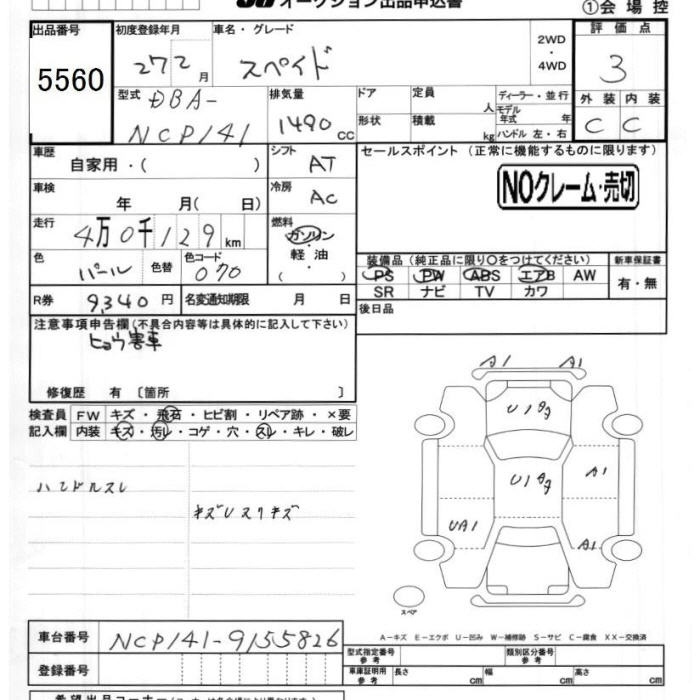 オークション出品申込書
①会場控
出品番号 初度登録年月 車名・グレード 2WD・4WD 評価点
5560 272月 スペイド 3
型式 DBA- 排気量 ドア 定員 人 ディーラー・並行 外装 内装
NCP141 1490cc 形状 積載 kg モデル年式 年 ハンドル 左・右 C C
車歴 自家用・( ) シフト AT セールスポイント (正常に機能するものに限ります)
車検 年 月(日) 冷房 AC NOクレーム・売切
走行 4万0千129km 燃料 ガソリン
軽油
( )
色 パール 色替 色コード 070 装備品(純正品に限り○をつけてください) 新車保証書
PS PW ABS エアB AW 有・無
SR ナビ TV カワ
R券 9,340円 名変通知期限 月 日 後日品
注意事項申告欄(不具合内容等は具体的に記入して下さい)
ヒョウ害車
修復歴 有 〔箇所 〕
検査員 FW キズ・飛石・ヒビ割・リペア跡・×要
記入欄 内装 キズ・汚レ・コゲ・穴・スレ・キレ・破レ
ハンドルスレ
キズUスリキズ
A1 A1
A1
UA1 A1
スペア
A−キズ E−エクボ U−凹み W−補修跡 S−サビ C−腐食 XX−交換済
車台番号 NCP141-9155826
型式指定番号 参考 類別区分番号 参考
登録番号 車庫証明用 参考 長さ cm 幅 cm 高さ cm
希望出品コーナー